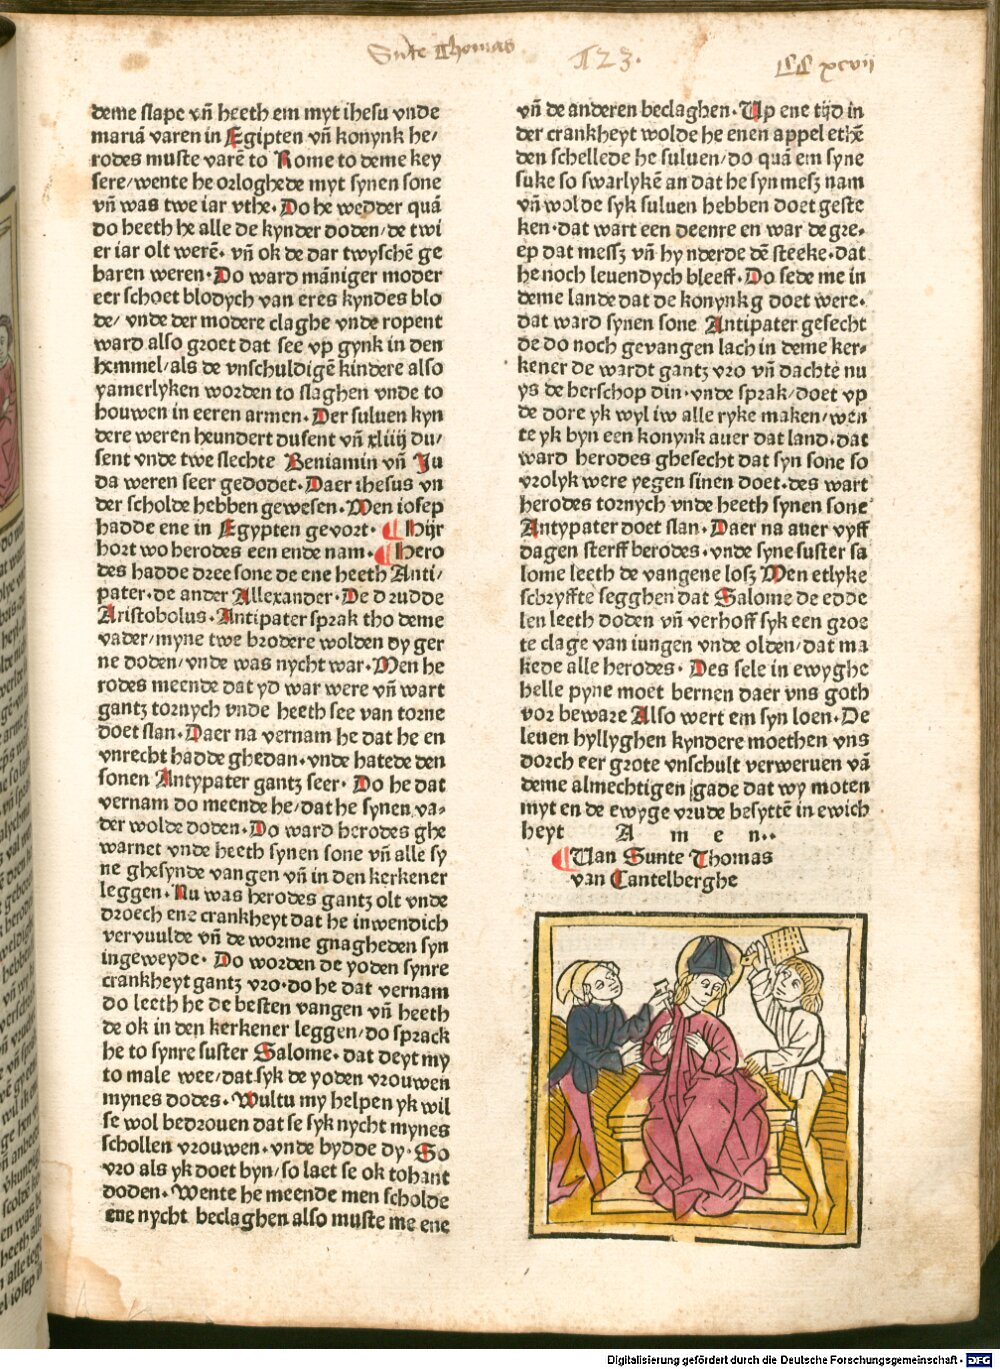 Sute Thomas
123.
xcvii
deme slape vñ heeth em myt ihesu vnde
mariā varen in Egipten vñ konynk he/
rodes muste varē to Rome to deme key
sere/wente he orloghede myt synen sone
vñ was twe iar vthe. Do he wedder quā
do heeth he alle de kynder doden/de twi
er iar olt werē. vñ ok de dar twyschē ge
baren weren. Do ward māniger moder
eer schoet blodych van eres kyndes blo
de/ vnde der modere claghe vnde ropent
ward also groet dat see vp gynk in den
hemmel/als de vnschuldigē kindere also
yamerlyken worden to slaghen vnde to
houwen in eeren armen. Der suluen kyn
dere weren hundert dusent vñ xliiij du/
sent vnde twe slechte Beniamin vñ Ju
da weren seer gedodet. Daer ihesus vn
der scholde hebben gewesen. Men iosep
hadde ene in Egypten gevort. Hijr
hort wo herodes een ende nam. Hero
des hadde dree sone de ene heeth Anti/
pater. de ander Allexander. De drudde
Aristobolus. Antipater sprak tho deme
vader/myne twe brodere wolden dy ger
ne doden/vnde was nycht war. Men he
rodes meende dat yd war were vñ wart
gantz tornych vnde heeth see van torne
doet slan. Daer na vernam he dat he en
vnrecht hadde ghedan. vnde hatede den
sonen Antypater gantz seer. Do he dat
vernam do meende he/dat he synen va-
der wolde doden. Do ward herodes ghe
warnet vnde heeth synen sone vñ alle sy
ne ghesynde vangen vñ in den kerkener
leggen. Nu was herodes gantz olt vnde
droech ene crankheyt dat he inwendich
vervuulde vñ de worme gnagheden syn
ingeweyde. Do worden de yoden synre
crankheyt gantz vro. do he dat vernam
do leeth he de besten vangen vñ heeth
de ok in den kerkener leggen/do sprack
he to synre suster Salome. dat deyt my
to male wee/dat syk de yoden vrouwen
mynes dodes. Wultu my helpen yk wil
se wol bedrouen dat se syk nycht mynes
schollen vrouwen. vnde bydde dy. So
vro als yk doet byn/so laet se ok tohant
doden. Wente he meende men scholde
ene nycht beclaghen also muste me ene
vñ de anderen beclaghen. Up ene tijd in
der crankheyt wolde he enen appel ethē
den schellede he suluen/do quā em syne
suke so swarlykē an dat he syn mesz nam
vñ wolde syk suluen hebben doet geste
ken. dat wart een deenre en war de gre-
ep dat messz vñ hynderde dē steeke. dat
he noch leuendych bleeff. Do sede me in
deme lande dat de konynkg doet were.
dat ward synen sone Antipater gesecht
de do noch gevangen lach in deme ker-
kener de wardt gantz vro vñ dachte nu
ys de herschop din. vnde sprak/doet vp
de dore yk wyl iw alle ryke maken/wen
te yk byn een konynk auer dat land. dat
ward herodes ghesecht dat syn sone so
vrolyk were yegen sinen doet. des wart
herodes tornych vnde heeth synen sone
Antypater doet slan. Daer na auer vyff
dagen sterff herodes. vnde syne suster sa
lome leeth de vangene losz Men etlyke
schryffte segghen dat Salome de edde
len leeth doden vñ verhoff syk een groe
te clage van iungen vnde olden/dat ma
kede alle herodes. Des sele in ewyghe
helle pyne moet bernen daer vns goth
vor beware Also wert em syn loen. De
leuen hyllyghen kyndere moethen vns
dorch eer grote vnschult verweruen vā
deme almechtigen gade dat wy moten
myt en de ewyge vrude besyttē in ewich
heyt A m e n..
Uan Sunte Thomas
van Cantelberghe
Digitalisierung gefördert durch die Deutsche Forschungsgemeinschaft - DFG